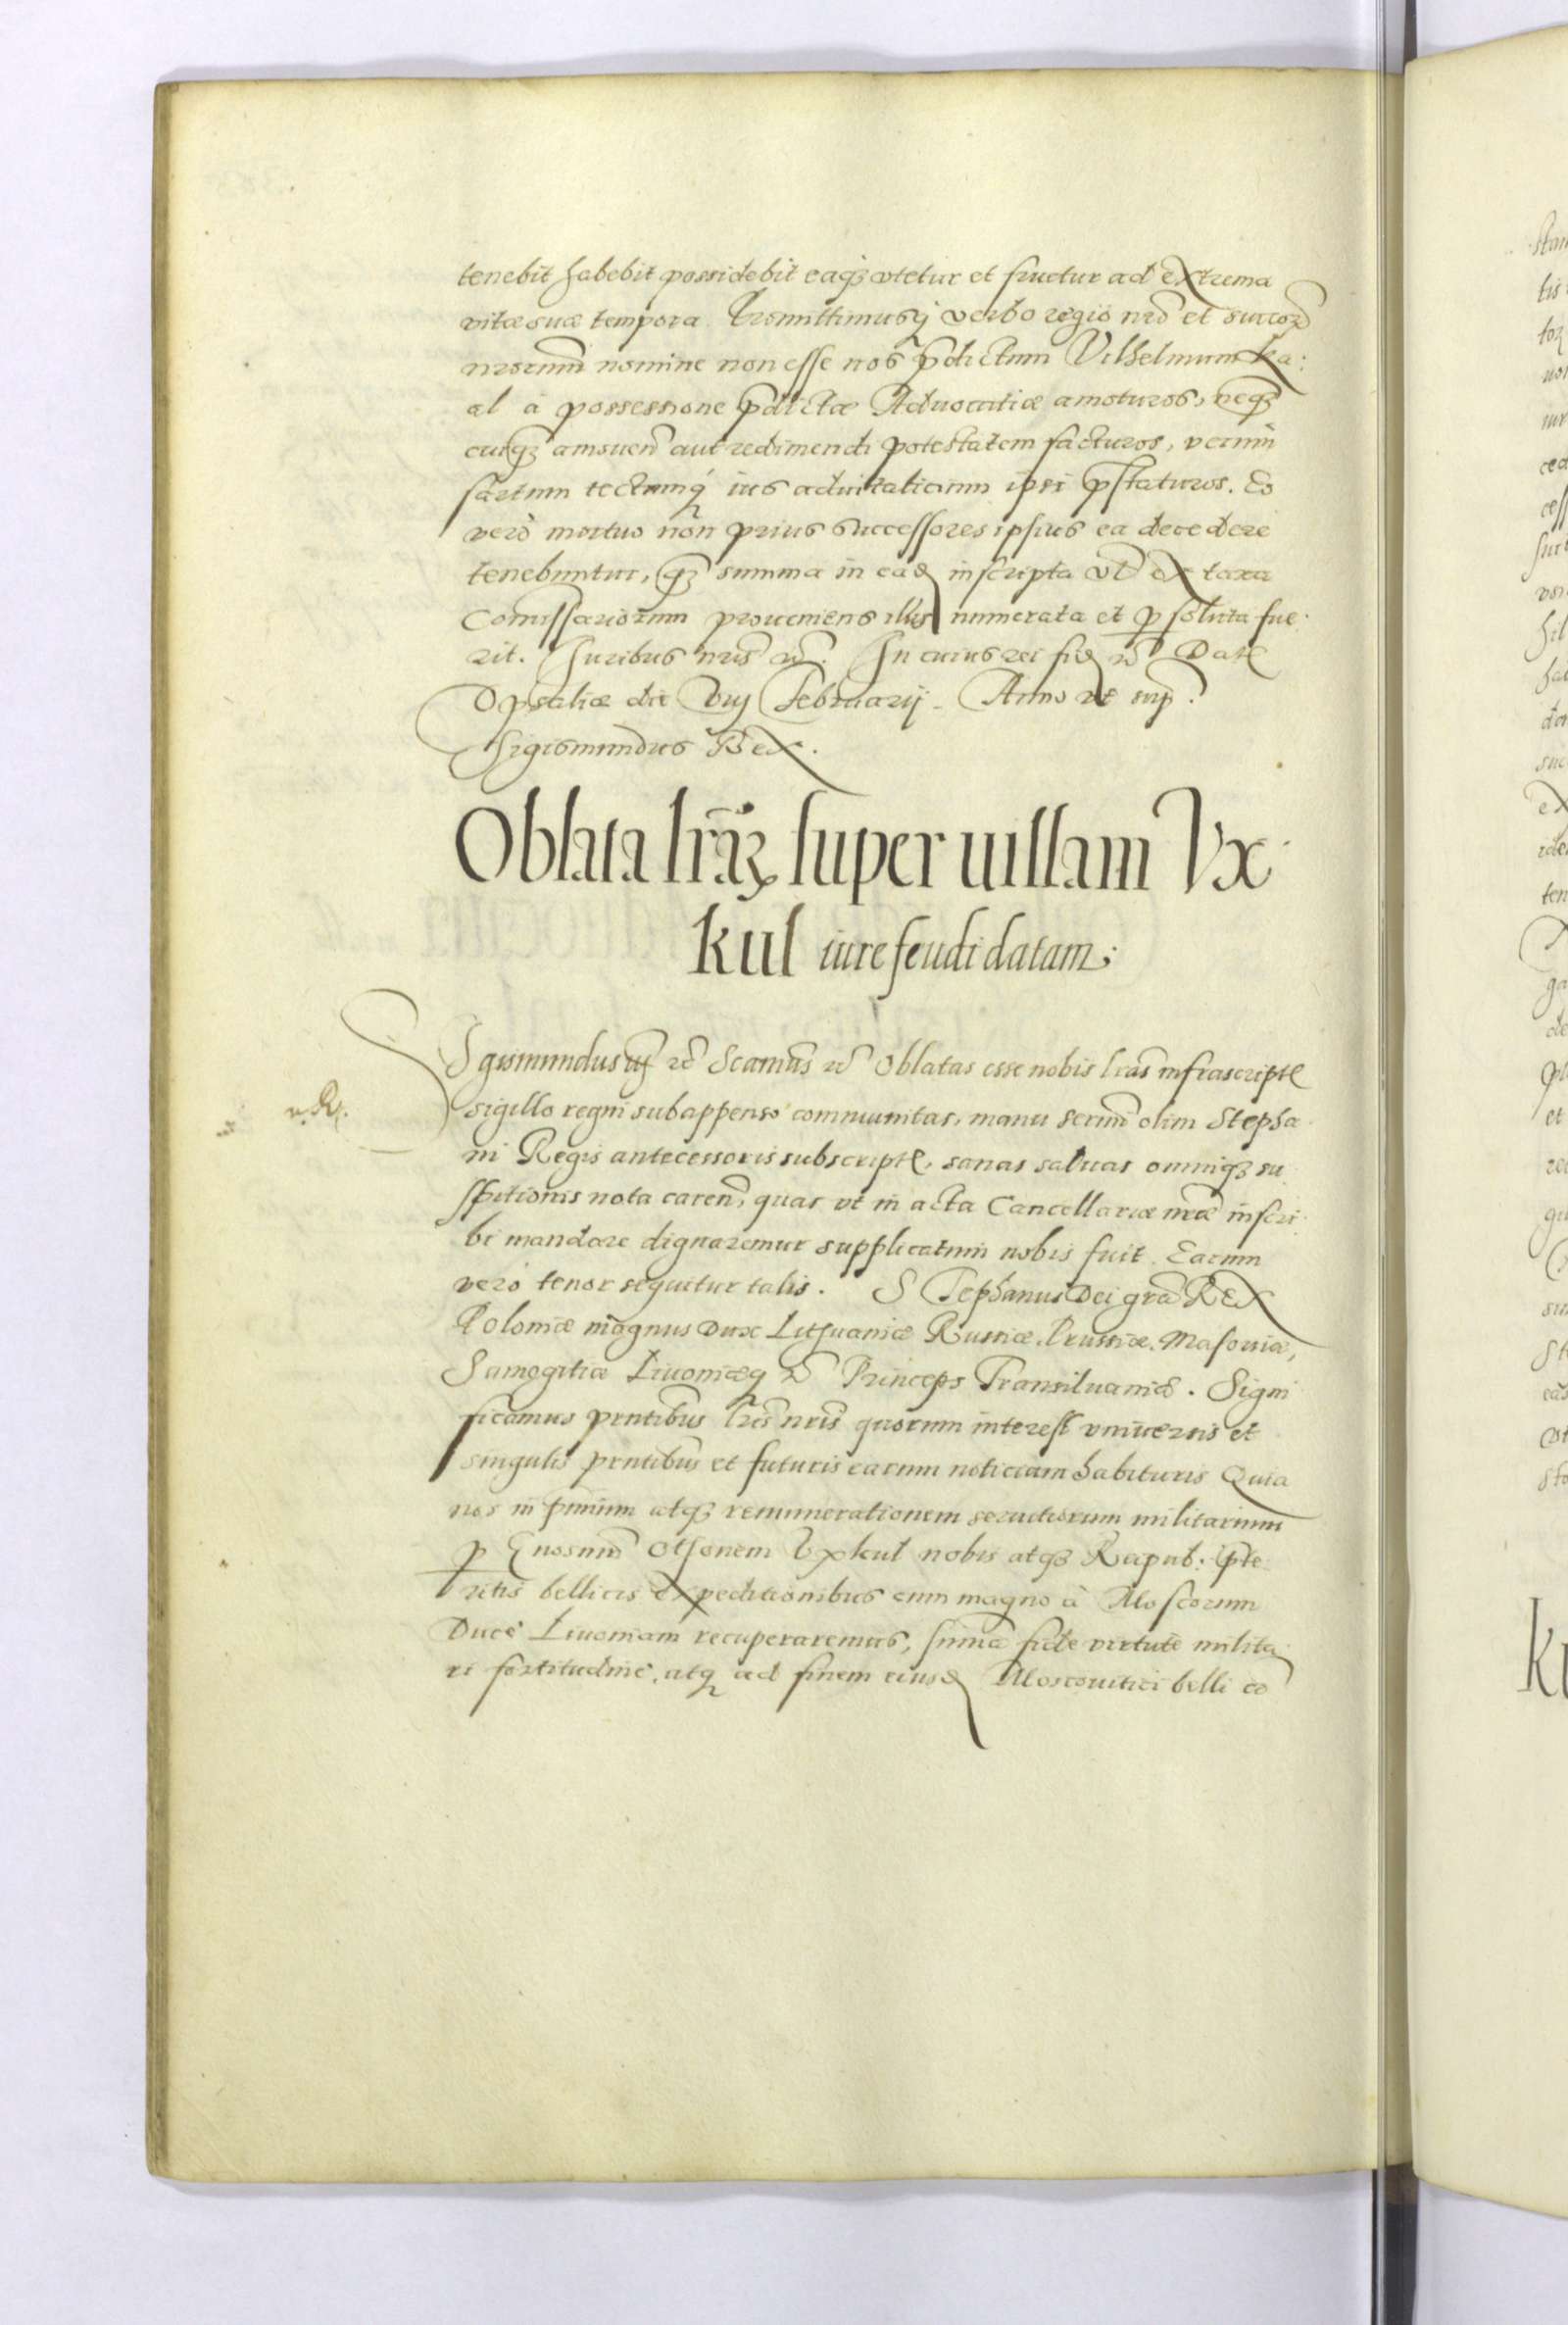 tenebit habebit possidebit eaq́ꝫ vtetur et fruetur ad extrema
vitæ suæ tempora. Promittimusq́ verbo regio nrō et succoꝝ
nrorum̄ nomine non esse nos p̄dictum Vilhelmum Ka:
al à possessione p̄dictæ Aduocatiæ amoturos, neqꝫ
cuiqꝫ amouen̄ aut redimendi potestatem facturos, verum
sartum tectumq́ ius aduitalicium ipsi p̄staturos. Eo
verò mortuo non prius successores ipsius ea decedere
tenebuntur, q̄ꝫ summa in eadꝫ inscripta vl̄ ex taxa
Comissariorum proueniens illis numerata et ꝑsoluta fue
rit. Iuribus nris̄ etc̄. In cuius rei fidꝫ etc̄ Datꝭ
Vpsaliæ die viij Februarij. Anno vt sup̄.
Sigismundus Rex.
Oblata lrāꝝ super uillam Vx
kul iure feudi datam;
Sigismundus iij etc̄ Scamus̄ etc̄ Oblatas esse nobis lrās infrascriptꝭ
sigillo regni subappenso communitas, manu sermi̅ olim Stepha
ni Regis antecessoris subscriptꝭ, sanas saluas omniqꝫ su
spitionis nota caren̄, quas vt in acta Cancellariæ nrǣ inscri
bi mandare dignaremur supplicatum nobis fuit. Earum
verò tenor sequitur talis. Stephanus Dei grā Rex
Poloniæ magnus Dux Lithuaniæ Russiæ, Prussiæ, Masouiæ,
Samogitiæ Liuoniæq́ etc̄ Princeps Transiluaniæ. Signi
ficamus prntibus̄ lris̄ nris̄ quorum interest vniuersis et
singulis prntibus̄ et futuris earum noticiam habituris Quia
nos in p̄mium atqꝫ remunerationem seruitiorum militarium
ꝑ Gnosum̄ Othonem Vxkul nobis atqꝫ Reipub: p̄te
ritis bellicis expeditionibus cum magno à Moscorum
Duce Liuoniam recuperaremus, sum̄a fide virtute milita
ri fortitudine, atq́ ad finem eiusdꝫ Moscouitici belli co